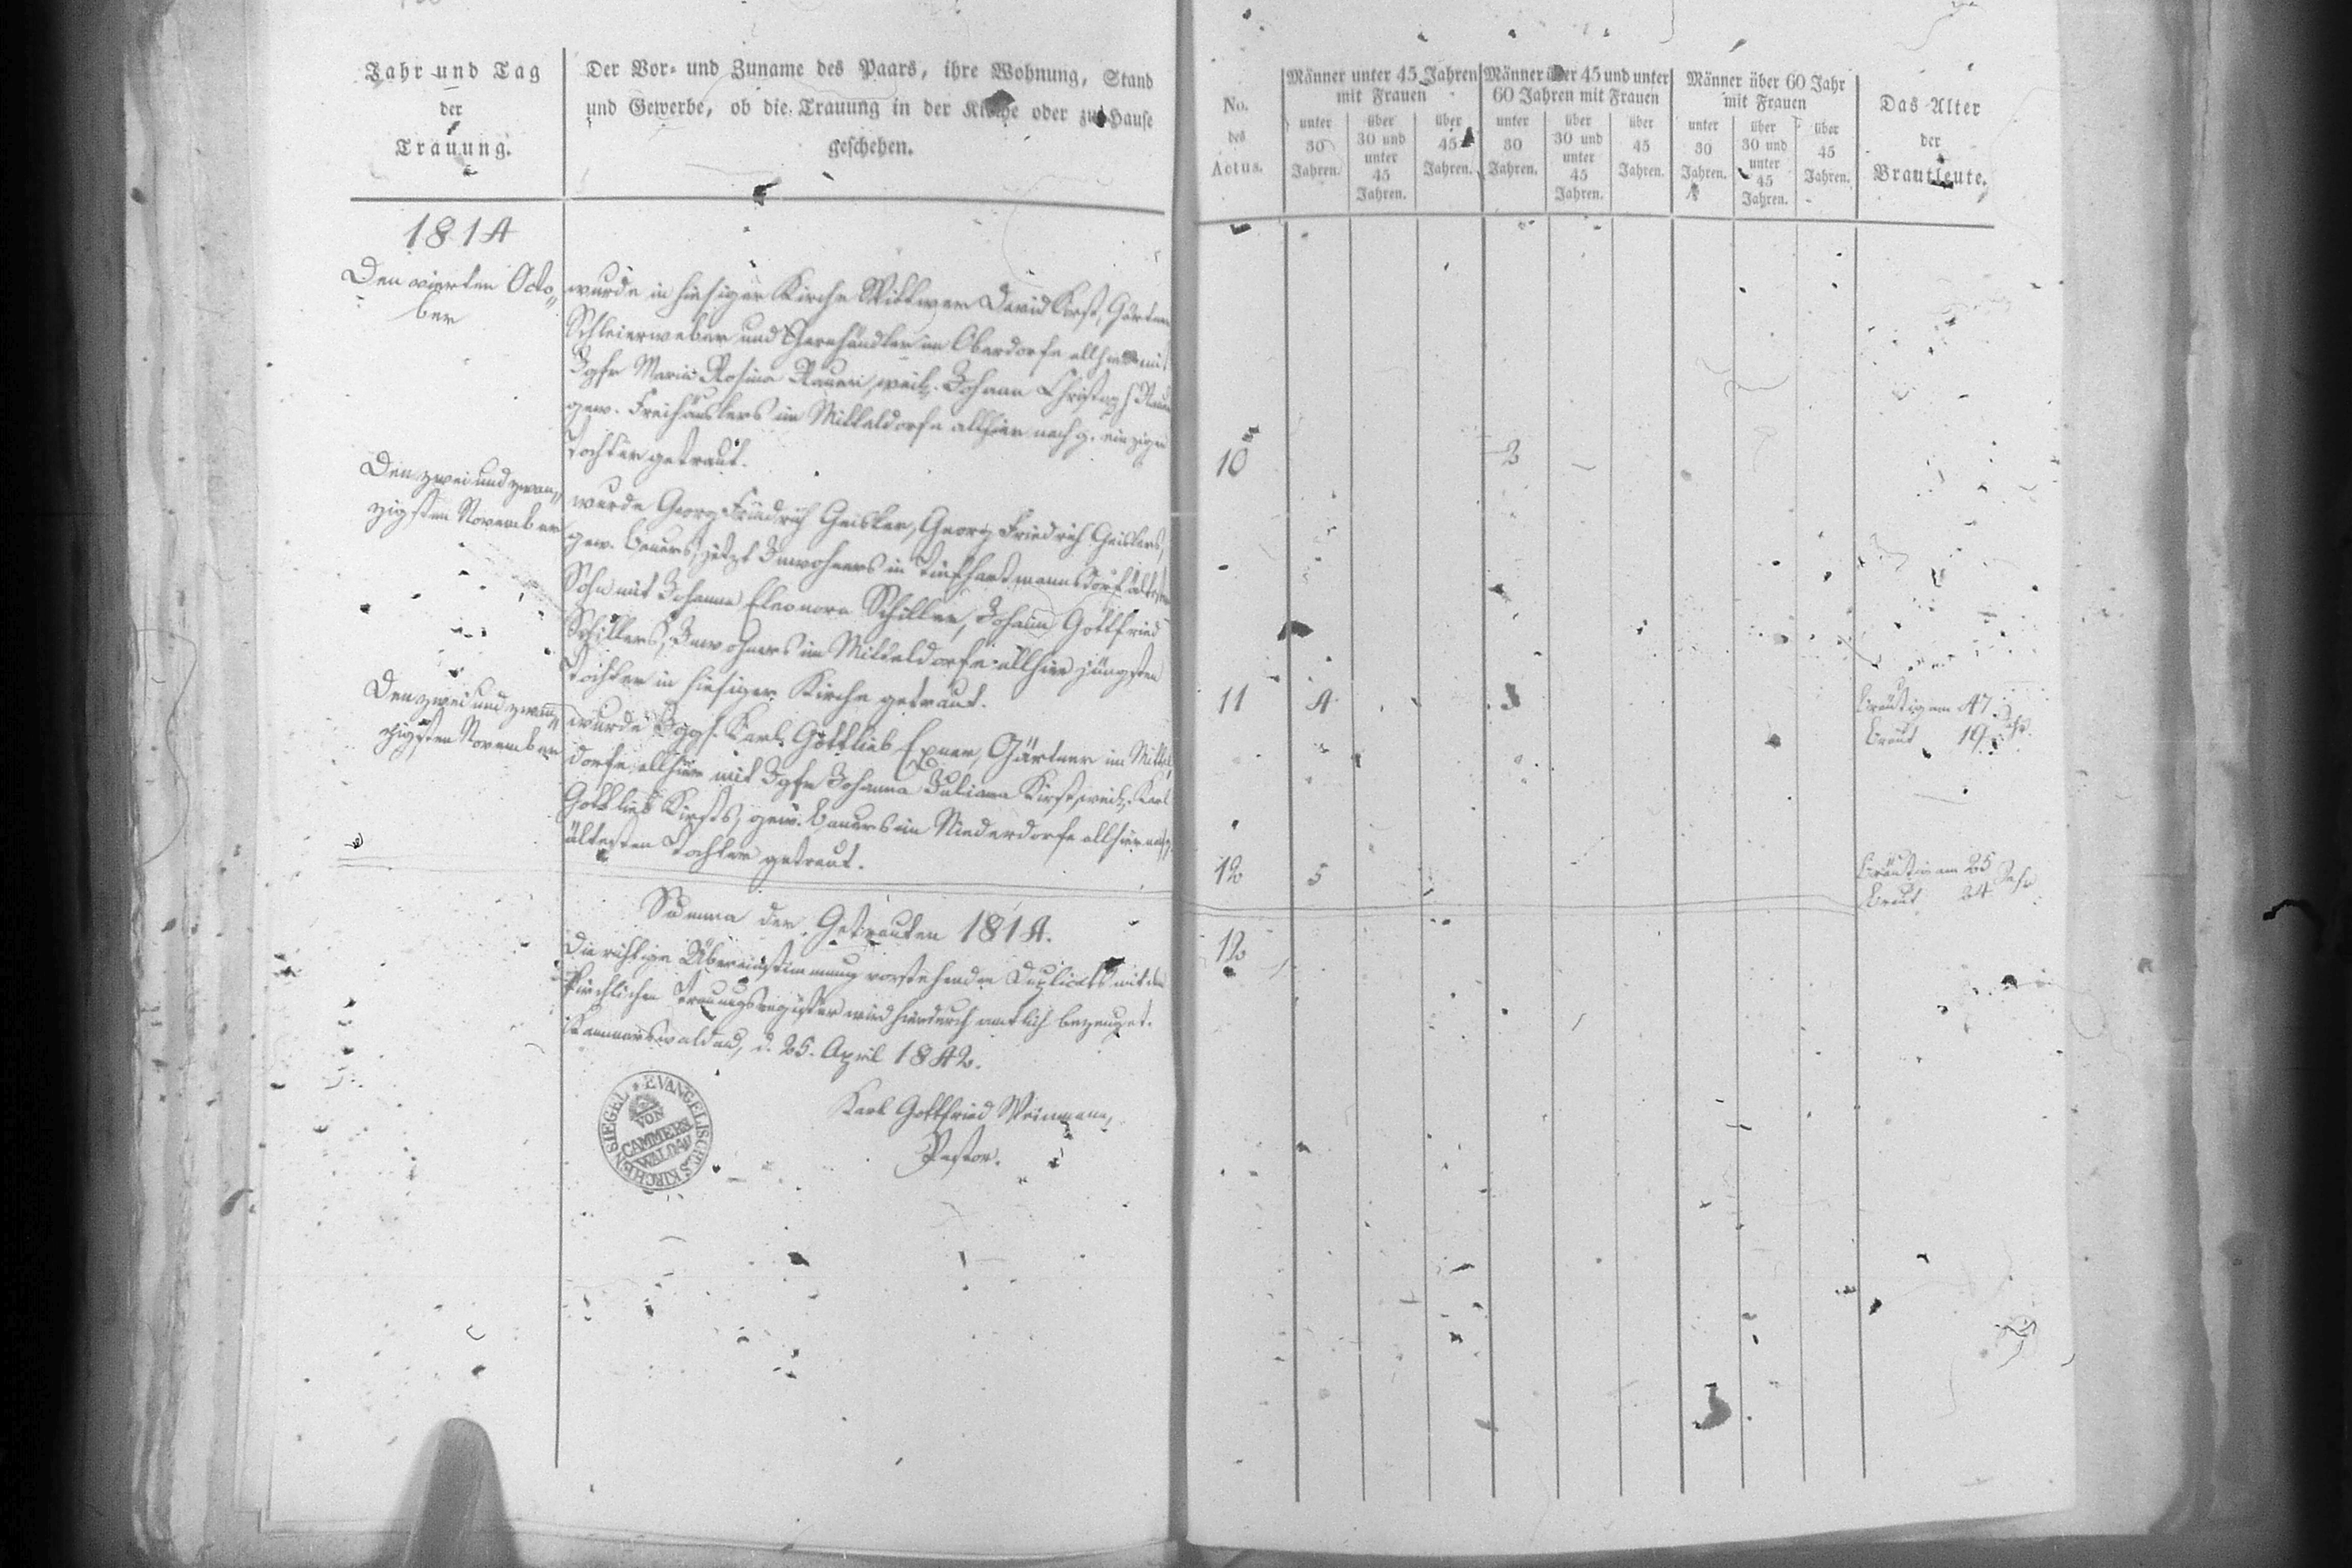 Jahr und Tag
der
Trauung.
Der Vor- und Zuname des Paars, ihre Wohnung, Stand
und Gewerbe, ob die Trauung in der Kirche oder zu Hause
geschehen.
1814
Den vierten Octo-
ber
wurde in hiesiger Kirche Wittwer David , Gärtner
Schleierweber und Garnhändler im Oberdorfe allhier mit
Jgfr Maria Rosina , weil. Johann Christoph
gew. Freihäuslers im Mitteldorfe allhier nachg. einzigen
Tochter getraut.
Den zwei und zwan-
zigsten November
wurde Georg Friedrich Geisler, Georg Friedrich Geislers,
gew. Bauers, jetzt Inwohners in Tiefhartmannsdorf ältester
Sohn mit Johanna Eleonora Schiller, Johann Gottfried
Schillers, Inwohners im Mitteldorfe allhier jüngsten
Tochter in hiesiger Kirche getraut.
Den zwei und zwan-
zigsten November
wurde Jggs. Karl Gottlieb Exner, Gärtner im Mittel-
dorfe allhier mit Jgfr Johanna Juliana Kirst, weil. Karl
Gottlieb Kirsts, gew. Bauers im Niederdorfe allhier nachg.
ältesten Tochter getraut.
Summa der Getrauten 1814.
Die richtige Übereinstimmung vorstehenden Duplicats mit dem
kirchlichen Trauungsregister wird hierdurch amtlich bezeuget.
Kammerswaldau, d. 25. April 1842.
Karl Gottfried Weinmann,
Pastor.
EVANGELISCHES KIRCHEN SIEGEL
VON
CAMMERS
WALDAU
No.
des
Actus.
Männer unter 45 Jahren
mit Frauen
unter
30
Jahren.
über
30 und
unter
45
Jahren.
über
45
Jahren.
Männer über 45 und unter
60 Jahren mit Frauen
unter
30
Jahren.
über
30 und
unter
45
Jahren.
über
45
Jahren.
Männer über 60 Jahr
mit Frauen
unter
30
Jahren.
über
30 und
unter
45
Jahren.
über
45
Jahren.
Das Alter
der
Brautleute.
10 2
11 4 3
Bräutigam 47
Braut 19 Jahr
12 5
Bräutigam 25
Braut 24 Jahr
12